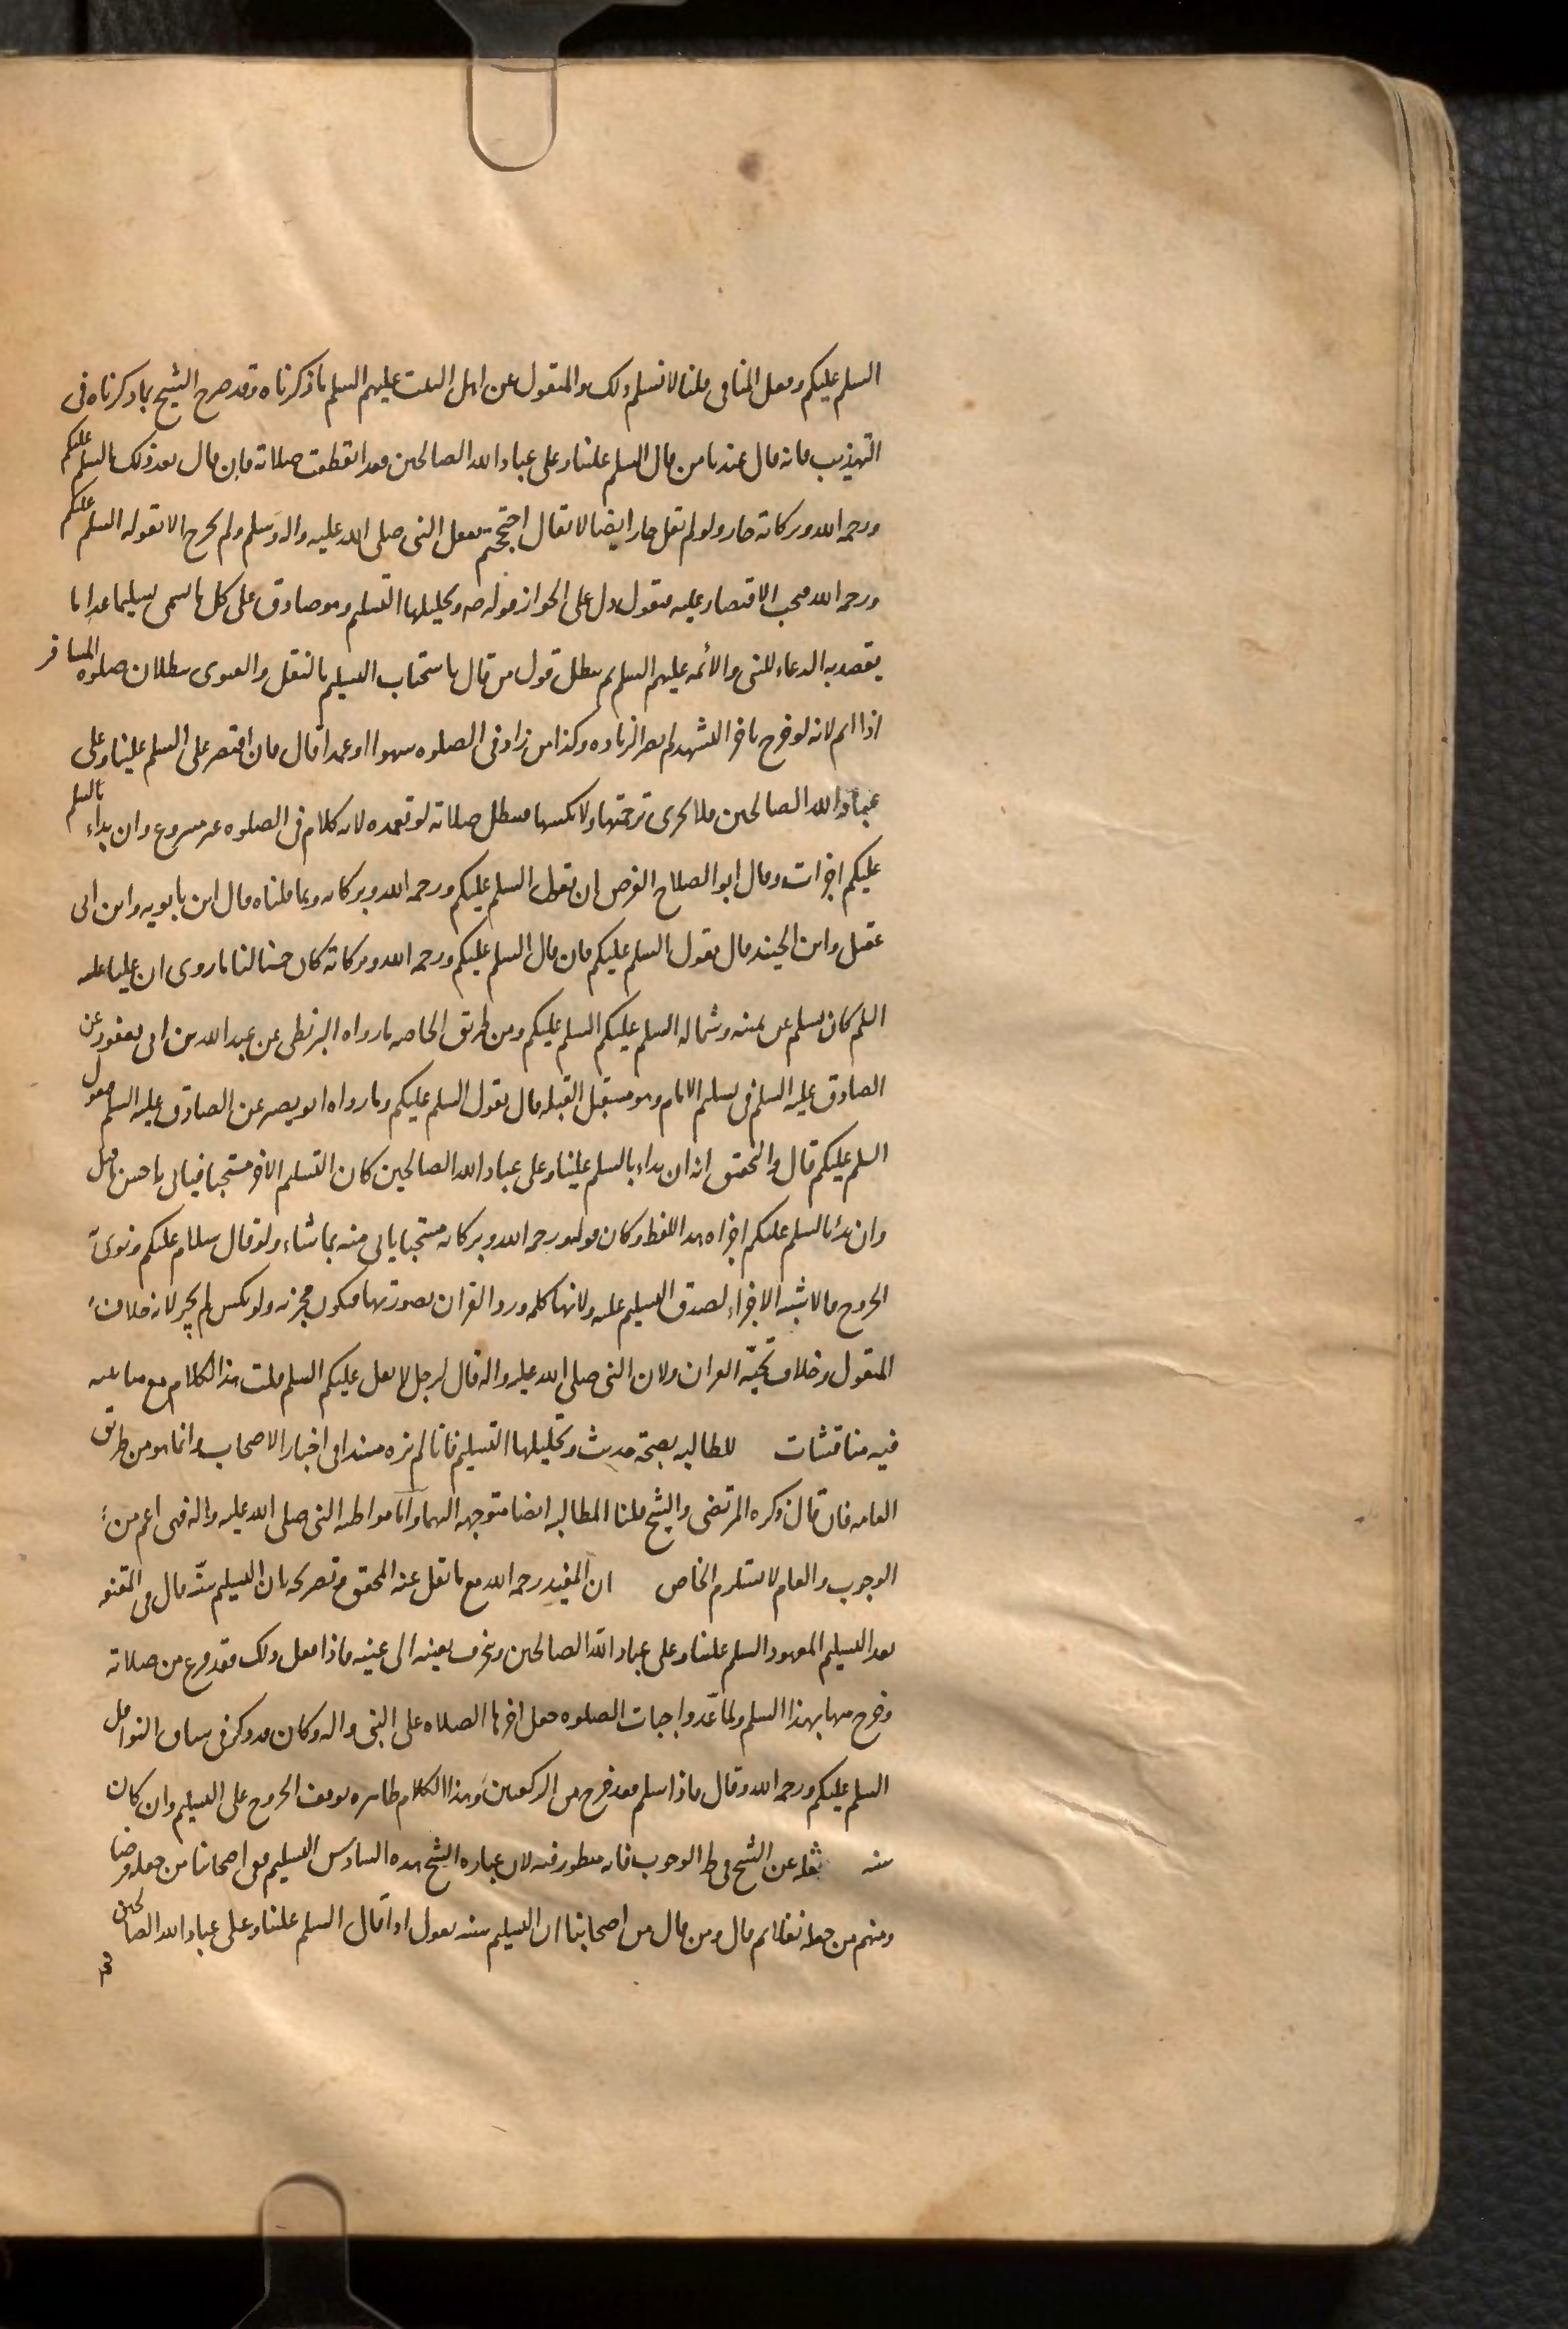 السلم عليكم وفعل المنافى قلنا لا نسلم ذلك والمنقول عن اهل البيت عليهم السلم ما ذكرناه وقد صرح الشيخ بما ذكرناه فى
التهذيب فانه قال عندنا من قال السلم علينا وعلى عباد الله الصالحين فقد انقطعت صلاته فان قال بعد ذلك السلم عليكم
ورحمه الله وبركاته جاز ولو لم يقل جاز ايضا لا يقال احتججتم بفعل النبى صلى الله عليه واله وسلم ولم يخرج الا بقوله السلم عليكم
ورحمه الله فيجب الاقتصار عليه فنقول دل على الجواز قوله صه وتحليلها التسليم وهو صادق على كل ما يسمى تسليما عدا ما
يقصد به الدعاء للنبى والائمه عليهم السلم ثم يبطل قول من قال باستحباب التسليم بالنقل والفتوى ببطلان صلوه المسافر
اذا اتم لانه لو خرج باخر التشهد لم يضر الزياده وكذا من زاد فى الصلوه سهوا او عمدا قال فان اقتصر على السلم علينا وعلى
عباد الله الصالحين فلا يجزى ترجمتها ولا نكسها فتبطل صلاته لو تعمده لانه كلام فى الصلوه غير مشروع وان بداء بالسلم
عليكم اجزات وقال ابو الصلاح الفرض ان يقول السلم عليكم ورحمه الله وبركاته وبما قلناه قال ابن بابويه وابن ابى
عقيل وابن الجنيد قال يقول السلم عليكم فان قال السلم عليكم ورحمه الله وبركاته كان حسنا لنا ما روى ان عليا عليه
السلم كان يسلم عن يمينه وشماله السلم عليكم السلم عليكم ومن طريق الخاصه ما رواه البزنطى عن عبد الله بن ابى يعفور عن
الصادق عليه السلم فى تسليم الامام وهو مستقبل القبله قال يقول السلم عليكم وما رواه ابو بصير عن الصادق عليه السلم تقول
السلم عليكم قال والتحقيق انه ان بداء بالسلم علينا وعلى عباد الله الصالحين كان التسليم الاخر مستحبا فياتى باحسن ما قيل
وان بدا بالسلم عليكم اجزاه هذا اللفظ وكان قوله ورحمه الله وبركاته مستحبا ياتى منه بما شاء ولو قال سلام عليكم ونوى
الخروج فالاشبه الاجزاء لصدق التسليم عليه ولانها كلمه ورد القران بصورتها فتكون مجزيه ولو نكس لم يجز لانه خلاف
المنقول وخلاف تحيّه القران ولان النبى صلى الله عليه واله قال لرجل لا تقل عليكم السلم قلت هذا الكلام مع متانته
فيه مناقشات للمطالبه بصحة حديث وتحليلها التسليم فانا لم نره مسندا فى اخبار الاصحاب وانما هو من طريق
العامه فان قال ذكره المرتضى والشيخ قلنا المطالبه ايضا متوجهه اليهما واما مواظبه النبى صلى الله عليه واله فهى اعم من
الوجوب والعام لا يستلزم الخاص ان المفيد رحمه الله مع ما نقل عنه المحقق من تصريحه بان التسليم سنّه قال فى المقنعه
بعد التسليم المعهود السلم علينا وعلى عباد الله الصالحين وينحرف بعينه الى يمينه فاذا فعل ذلك فقد فرغ من صلاته
وخرج منها بهذا السلم ولما عّد واجبات الصلوه جعل اخرها الصلاه على النبى واله وكان قد ذكر فى سياق النوافل
السلم عليكم ورحمه الله وقال فاذا سلم فقد خرج من الركعتين وهذا الكلام ظاهره توقف الخروج على التسليم وان كان
سنه نقله عن الشيخ فى ط الوجوب فانه منظور فيه لان عباره الشيخ هذه السادس التسليم ففى اصحابنا من جعله فرضا
ومنهم من جعله نفلا ثم قال ومن قال من اصحابنا ان التسليم سنه يقول اذا قال السلم علينا وعلى عباد الله الصالحين